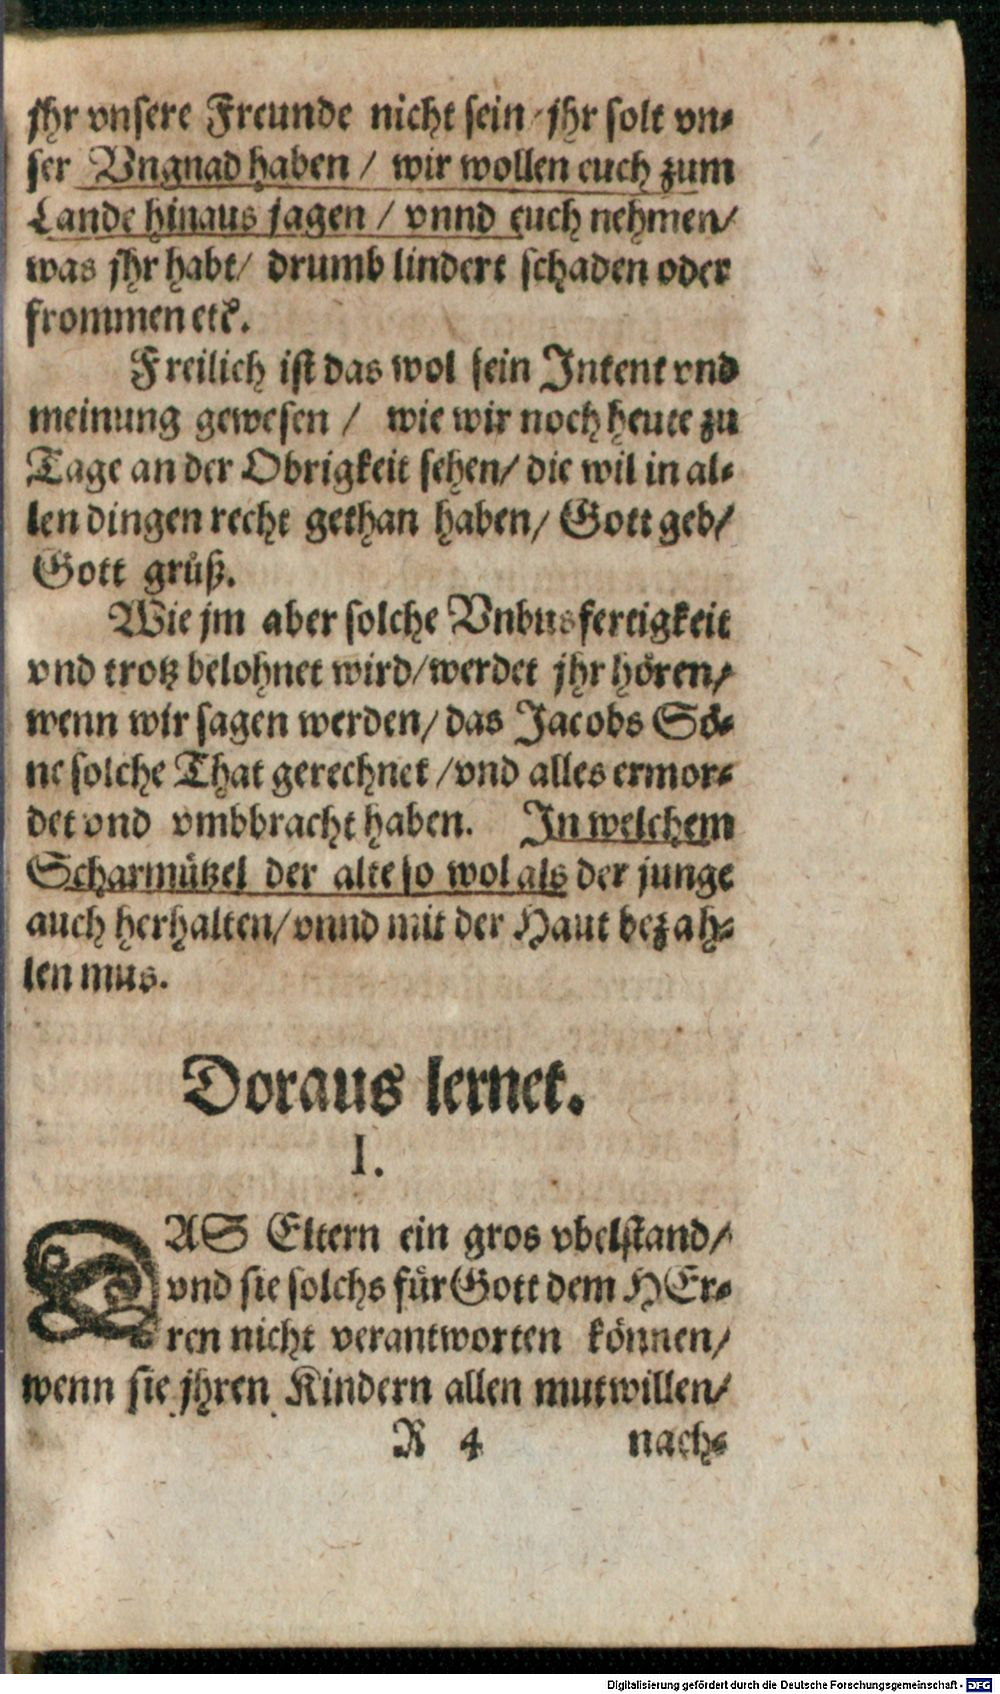 jhr vnsere Freunde nicht sein / jhr solt vn-
ser Vngnad haben / wir wollen euch zum
Lande hinaus jagen / vnnd euch nehmen/
was jhr habt/ drumb lindert schaden oder
frommen etc.
Freilich ist das wol sein Intent vnd
meinung gewesen / wie wir noch heute zu
Tage an der Obrigkeit sehen/ die wil in al-
len dingen recht gethan haben/ Gott geb/
Gott grüß.
Wie jm aber solche Vnbusfertigkeit
vnd trotz belohnet wird/werdet jhr hören/
wenn wir sagen werden/ das Jacobs Sö-
ne solche That gerechnet /vnd alles ermor-
det vnd vmbbracht haben. In welchem
Scharmützel der alte so wol als der junge
auch herhalten/ vnnd mit der Haut bezah-
len mus.
Doraus lernet.
I.
DAS Eltern ein gros vbelstand/
vnd sie solchs für Gott dem HEr-
ren nicht verantworten können/
wenn sie jhren Kindern allen mutwillen/
R 4 nach-
Digitalisierung gefördert durch die Deutsche Forschungsgemeinschaft - DFG